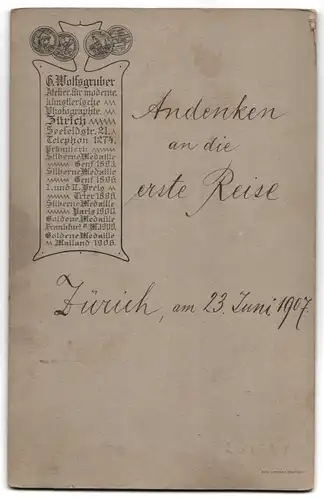 G. Wolfsgruber
Atelier für moderne
künstlerische
Photographie.
Zürich
Seefeldstr. 21.
Telephon 1274.
Prämiert:
Silberne Medaille
Genf 1893.
Silberne Medaille
Genf 1896.
I. und II. Preis
Trier 1898
Silberne Medaille
Paris 1900.
Goldene Medaille
Frankfurt a/M. 1900.
Goldene Medaille
Mailand 1906.
Andenken
an die
erste Reise
Zürich, am 23. Juni 1907.